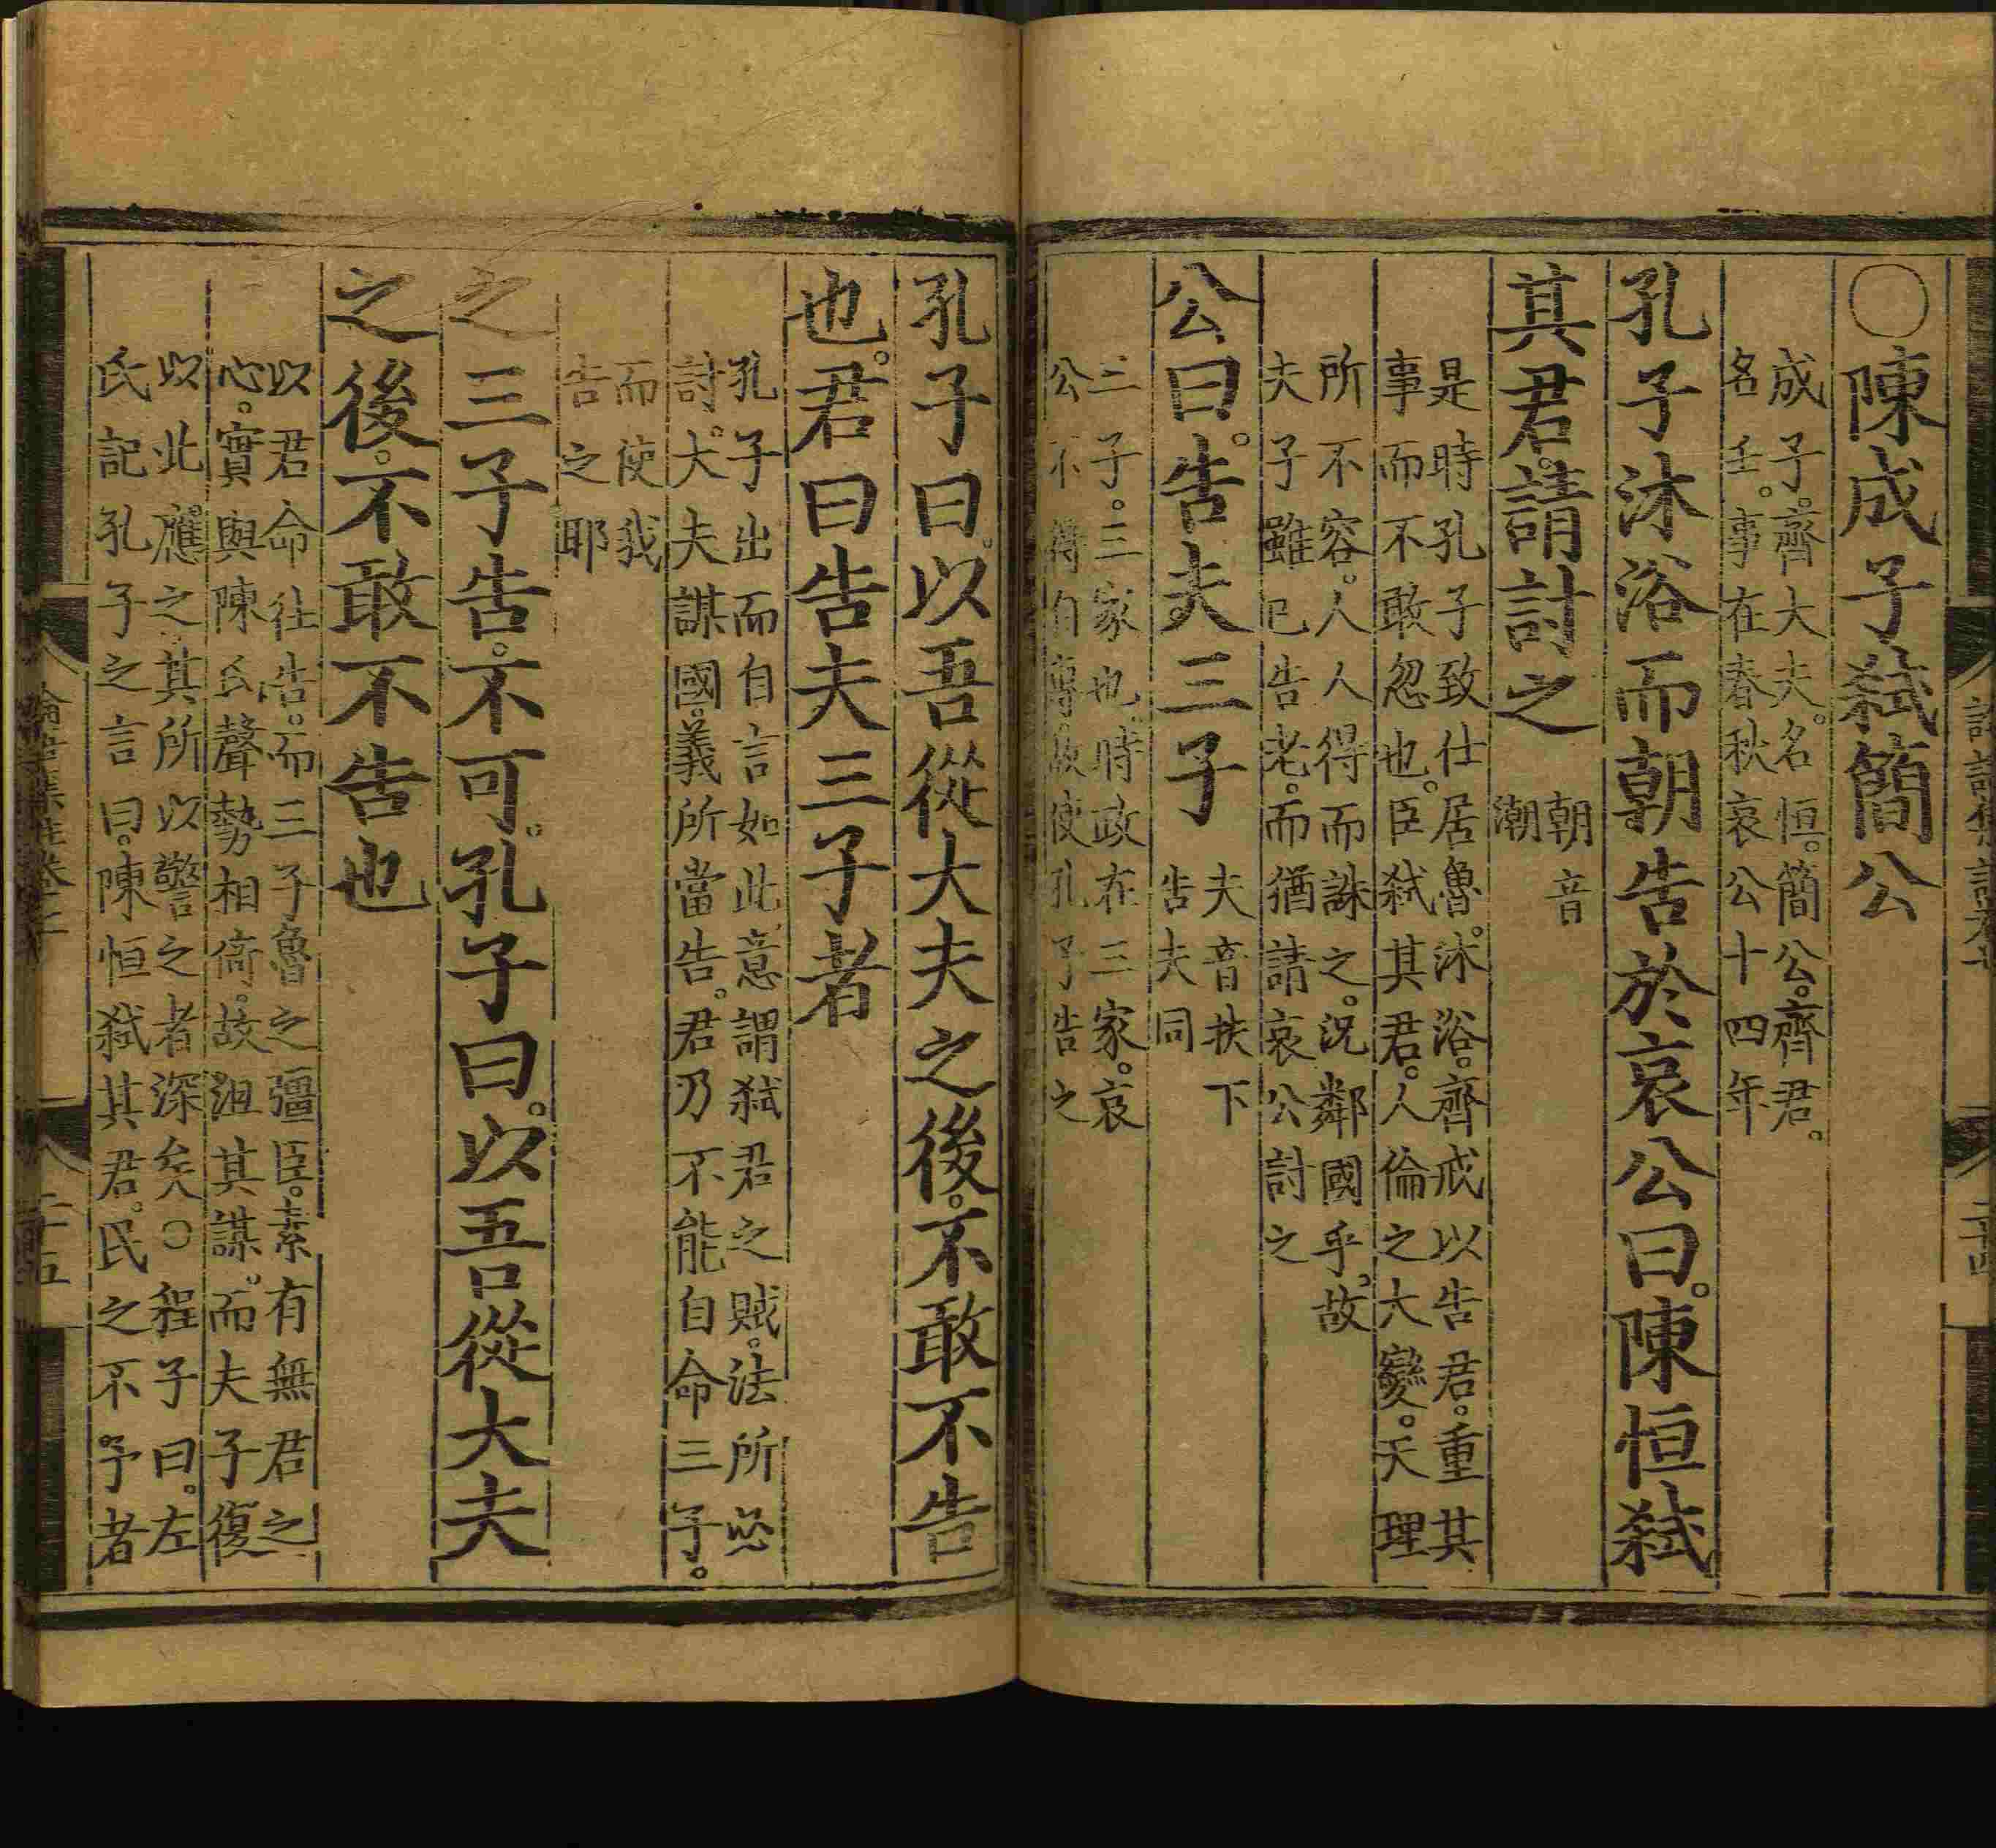 ○陳成子弑簡公
成子。齊大夫。名恒。簡公。齊君。
名壬。事在春秋哀公十四年
孔子沐浴而朝告於哀公曰。陳恒弑
其君。請討之
朝音
潮
是時孔子致仕居魯。沐浴。齊戒以告君。重其
事而不敢忽也。臣弑其君。人倫之大變。天理
所不容。人人得而誅之。況鄰國乎。故
夫子雖已告老。而猶請哀公討之
公曰。告夫三子
夫音扶下
告夫同
三子。三家也。時政在三家。哀
公不得自專。故使孔子告之
孔子曰。以吾從大夫之後。不敢不告
也。君曰告夫三子者
孔子出而自言如此意謂弑君之賊。法所必
討。大夫謀國。義所當告。君乃不能自命三子。
而使我
告之耶
之三子告。不可。孔子曰。以吾從大夫
之後。不敢不告也
以君命往告。而三子魯之彊臣。素有無君之
心。實與陳氏聲勢相倚。故沮其謀。而夫子復
以此應之。其所以警之者深矣○程子曰。左
氏記孔子之言曰。陳恒弑其君。民之不予者
二十五